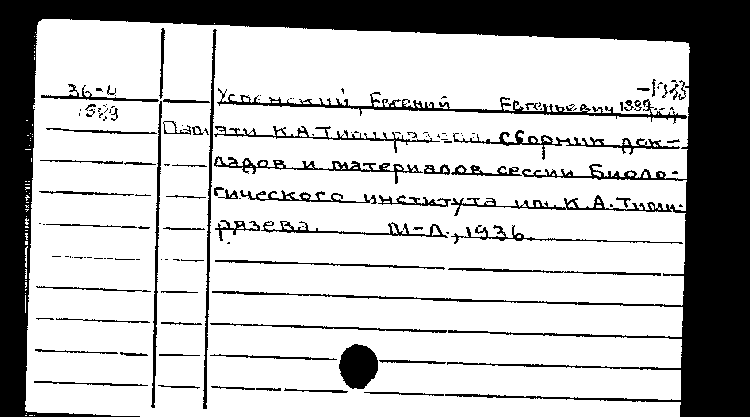 36-4
1989
Успенский, Евгений Евгеньевич, 1889-
Памяти К.А.Тимирязева. Сборник док-
ладов и материалов сессии Биоло-
гического института им. К.А.Тими-
рязева. М-Л., 1936.